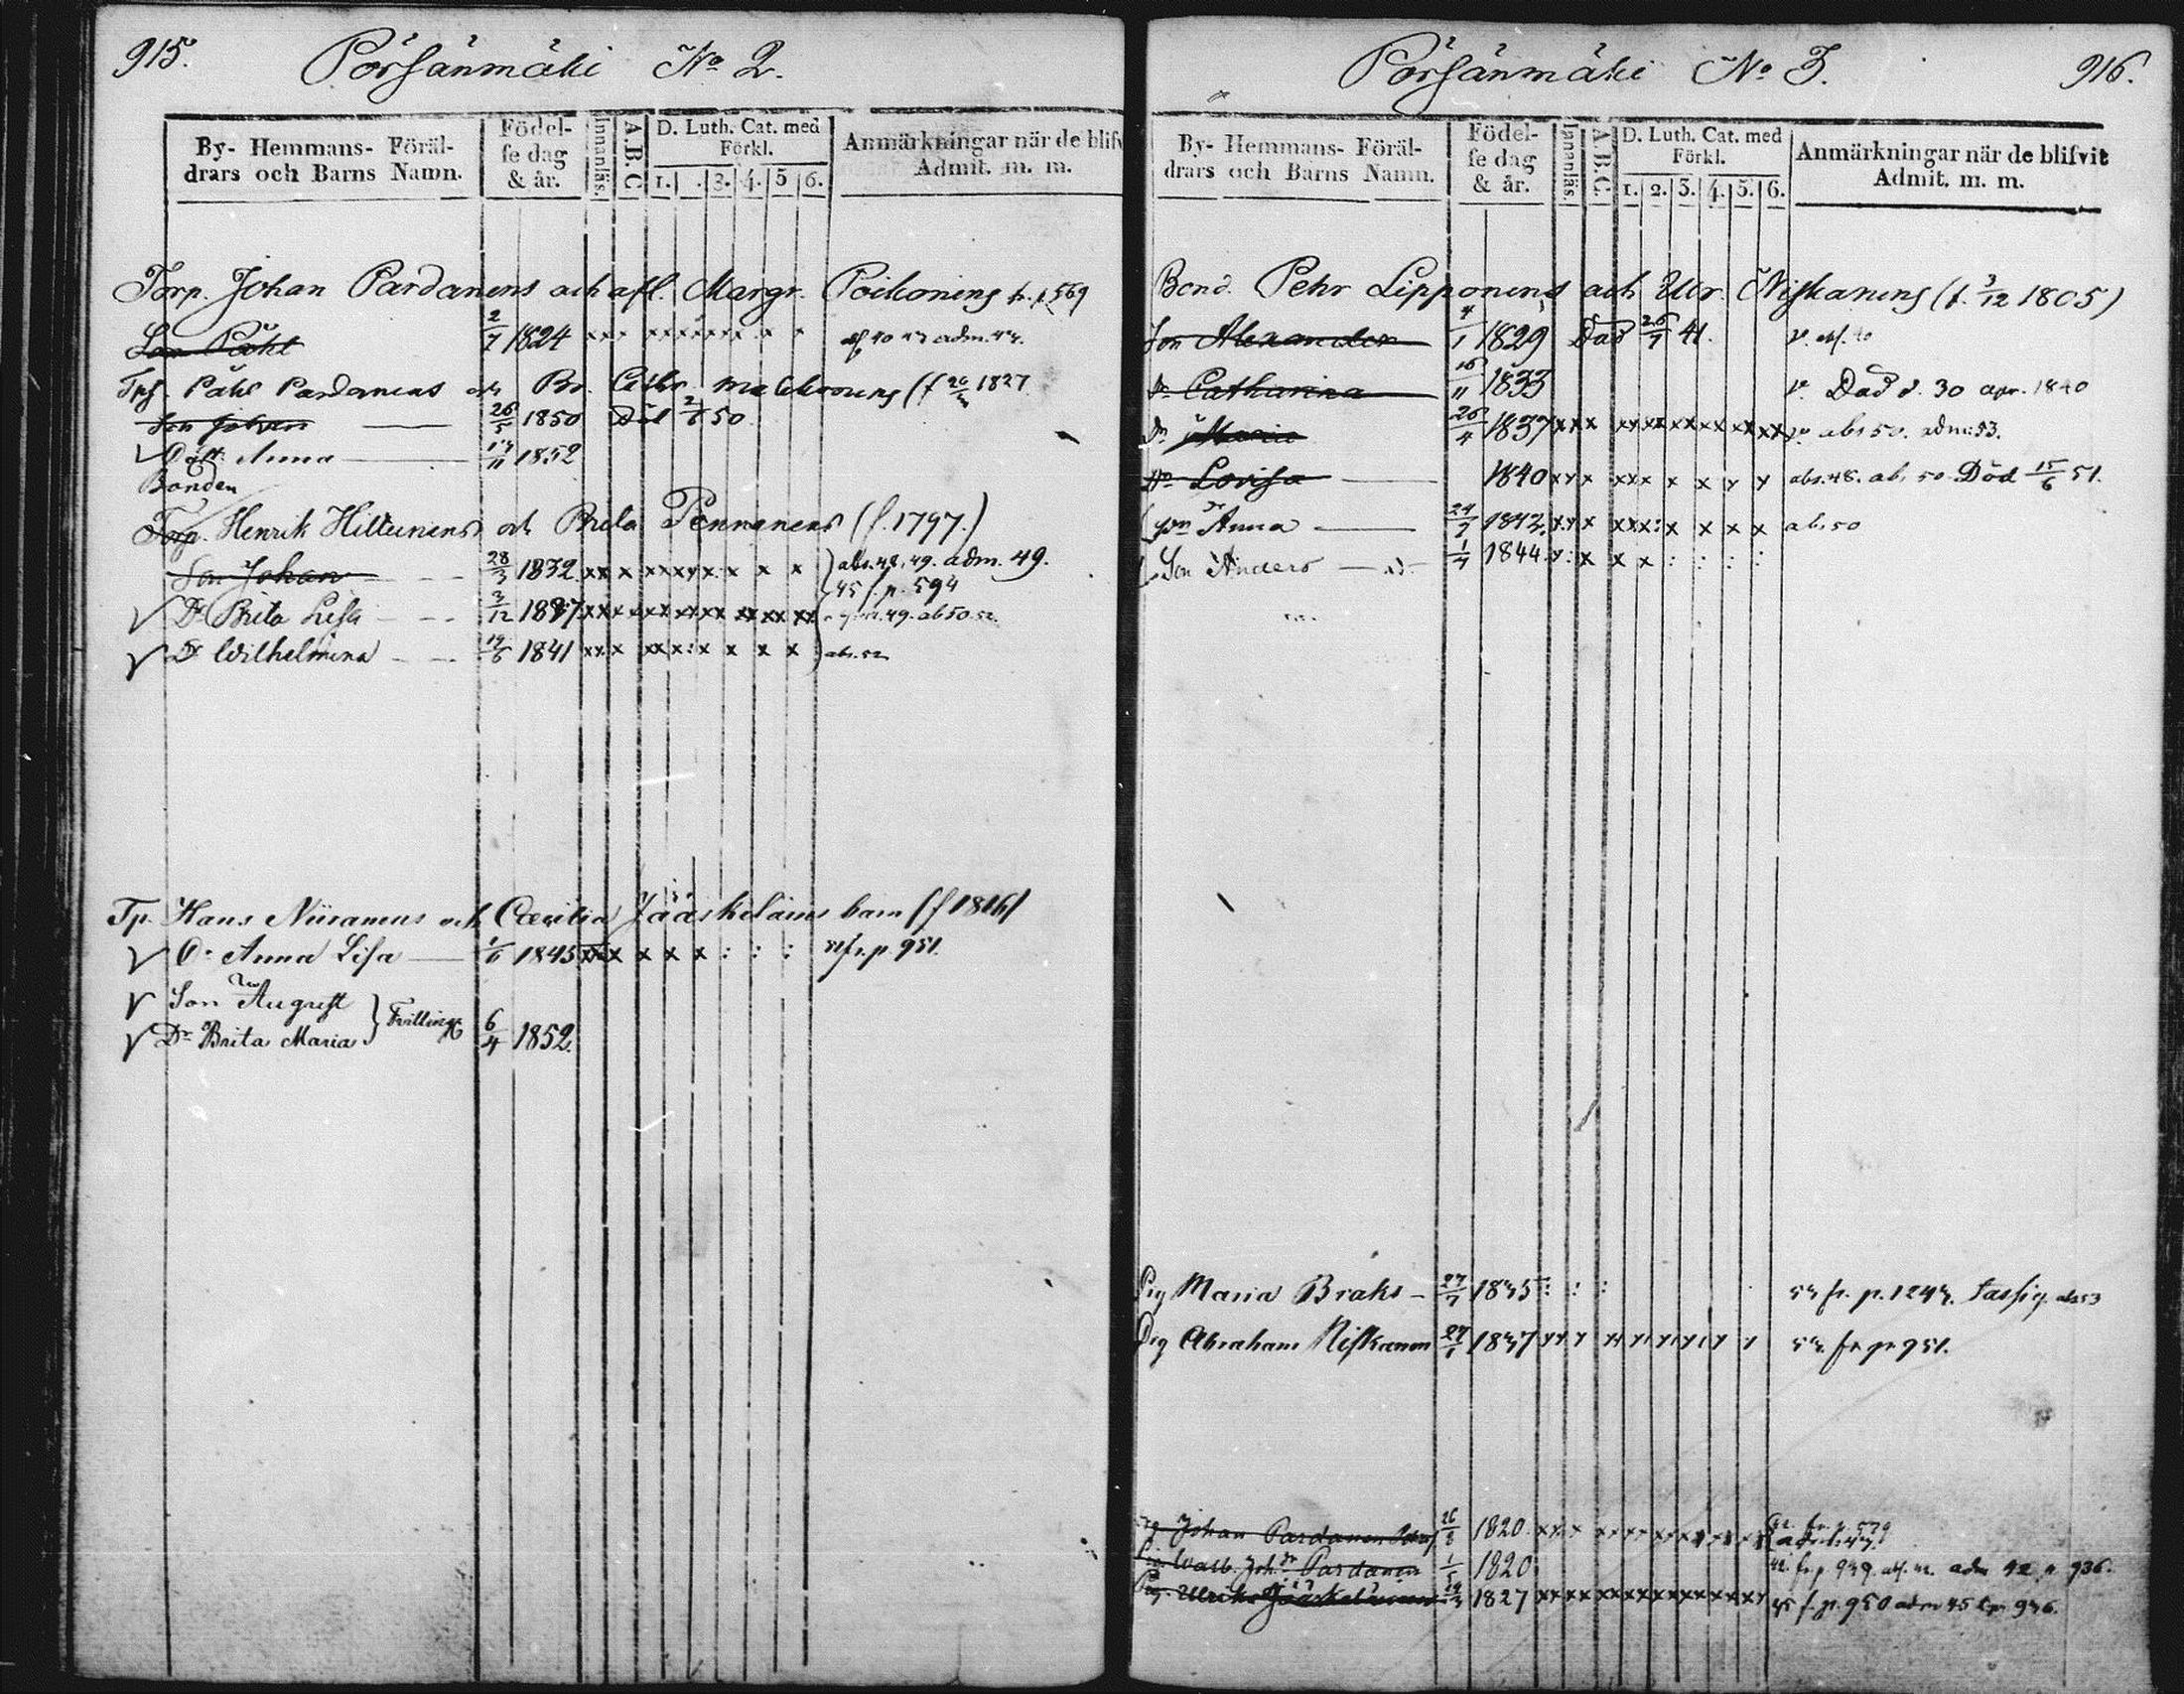 915. Pörsänmäki No 2.
By- Hemmans- Föräl-
drars och Barns Namn.
Födel-
se dag
& år.
Innanläs.
A.B.C
D. Luth. Cat. med
Förkl.
1. . 3. 4. 5 6.
Anmärkningar när de blifv
Admit. m. m.
Torp. Johan Pardanens och afl. Margr. Poikonens fr. p. 569
Son Påhl 2/7 1824 xxx xxxxxxx x x adm. 44.
Påhl Pardanens och Br. Cathr. (f 1827
Son Johan 26/5 1850 Död 2/6 50.
√ Dott. Anna 1852
Bonden
Torp. Henrik Hiltunens och Brita Pennanens (f. 1797.)
Son Johan 28/3 1832 xx x xxxx x x x x abs. 48, 49. adm. 49.
45 f. p. 594
√ Dr Brita Lisa 3/12 1837 49. ab 50. 52.
√ Dr Wilhelmina 19/6 1841 xx x xx x : x x x x abs. 52
Tp. Hans Niiranens och Cæcilia Jääskeläins barn (f 1816)
√ Dr Anna Lisa 1/6 1845 xx x x x x : : : fr. p 951.
√ Son August
√ Dr Brita Maria } Tvillingar 6/4 1852.
Pörsänmäki No 3. 916.
By- Hemmans- Föräl-
drars och Barns Namn.
Födel-
se dag
& år.
Innanläs.
A.B.C.
D. Luth. Cat. med
Förkl.
1. 2. 3. 4. 5. 6.
Anmärkningar när de blifvit
Admit. m. m.
Bond. Pehr Lipponens och Ulr. Niskanens (f. 3/12 1805)
Son Alexander 4/1 1829 Död 26/7 41.
Dr Catharina 16/11 1833 Död d. 30 apr. 1840
Dr Maria 26/4 1837 xxx xx xx xx xx xx xx abs 50. adm: 53.
Dr Lovisa 1840 xxx xxx x x x x abs. 48. ab. 50. Död 15/6 51.
Dr Anna 24/9 1842 xxx xxx:x x x x x ab. 50
Son Anders 1/4 1844 x:x x x : : : :
Pig Maria Braks 27/7 1835 : : : fr. p. 1244. abs 53
Drg Abraham Niskanen 27/1 1837 fr p 951.
Johan Pardanen 26/8 1820
Walb. Joh.dr Pardanen 1/5 1820 42. fr. p 939 adm 42 p 936.
Pig. Ulrika Jääskeläinen 1827 45 f. p. 950 adm 45